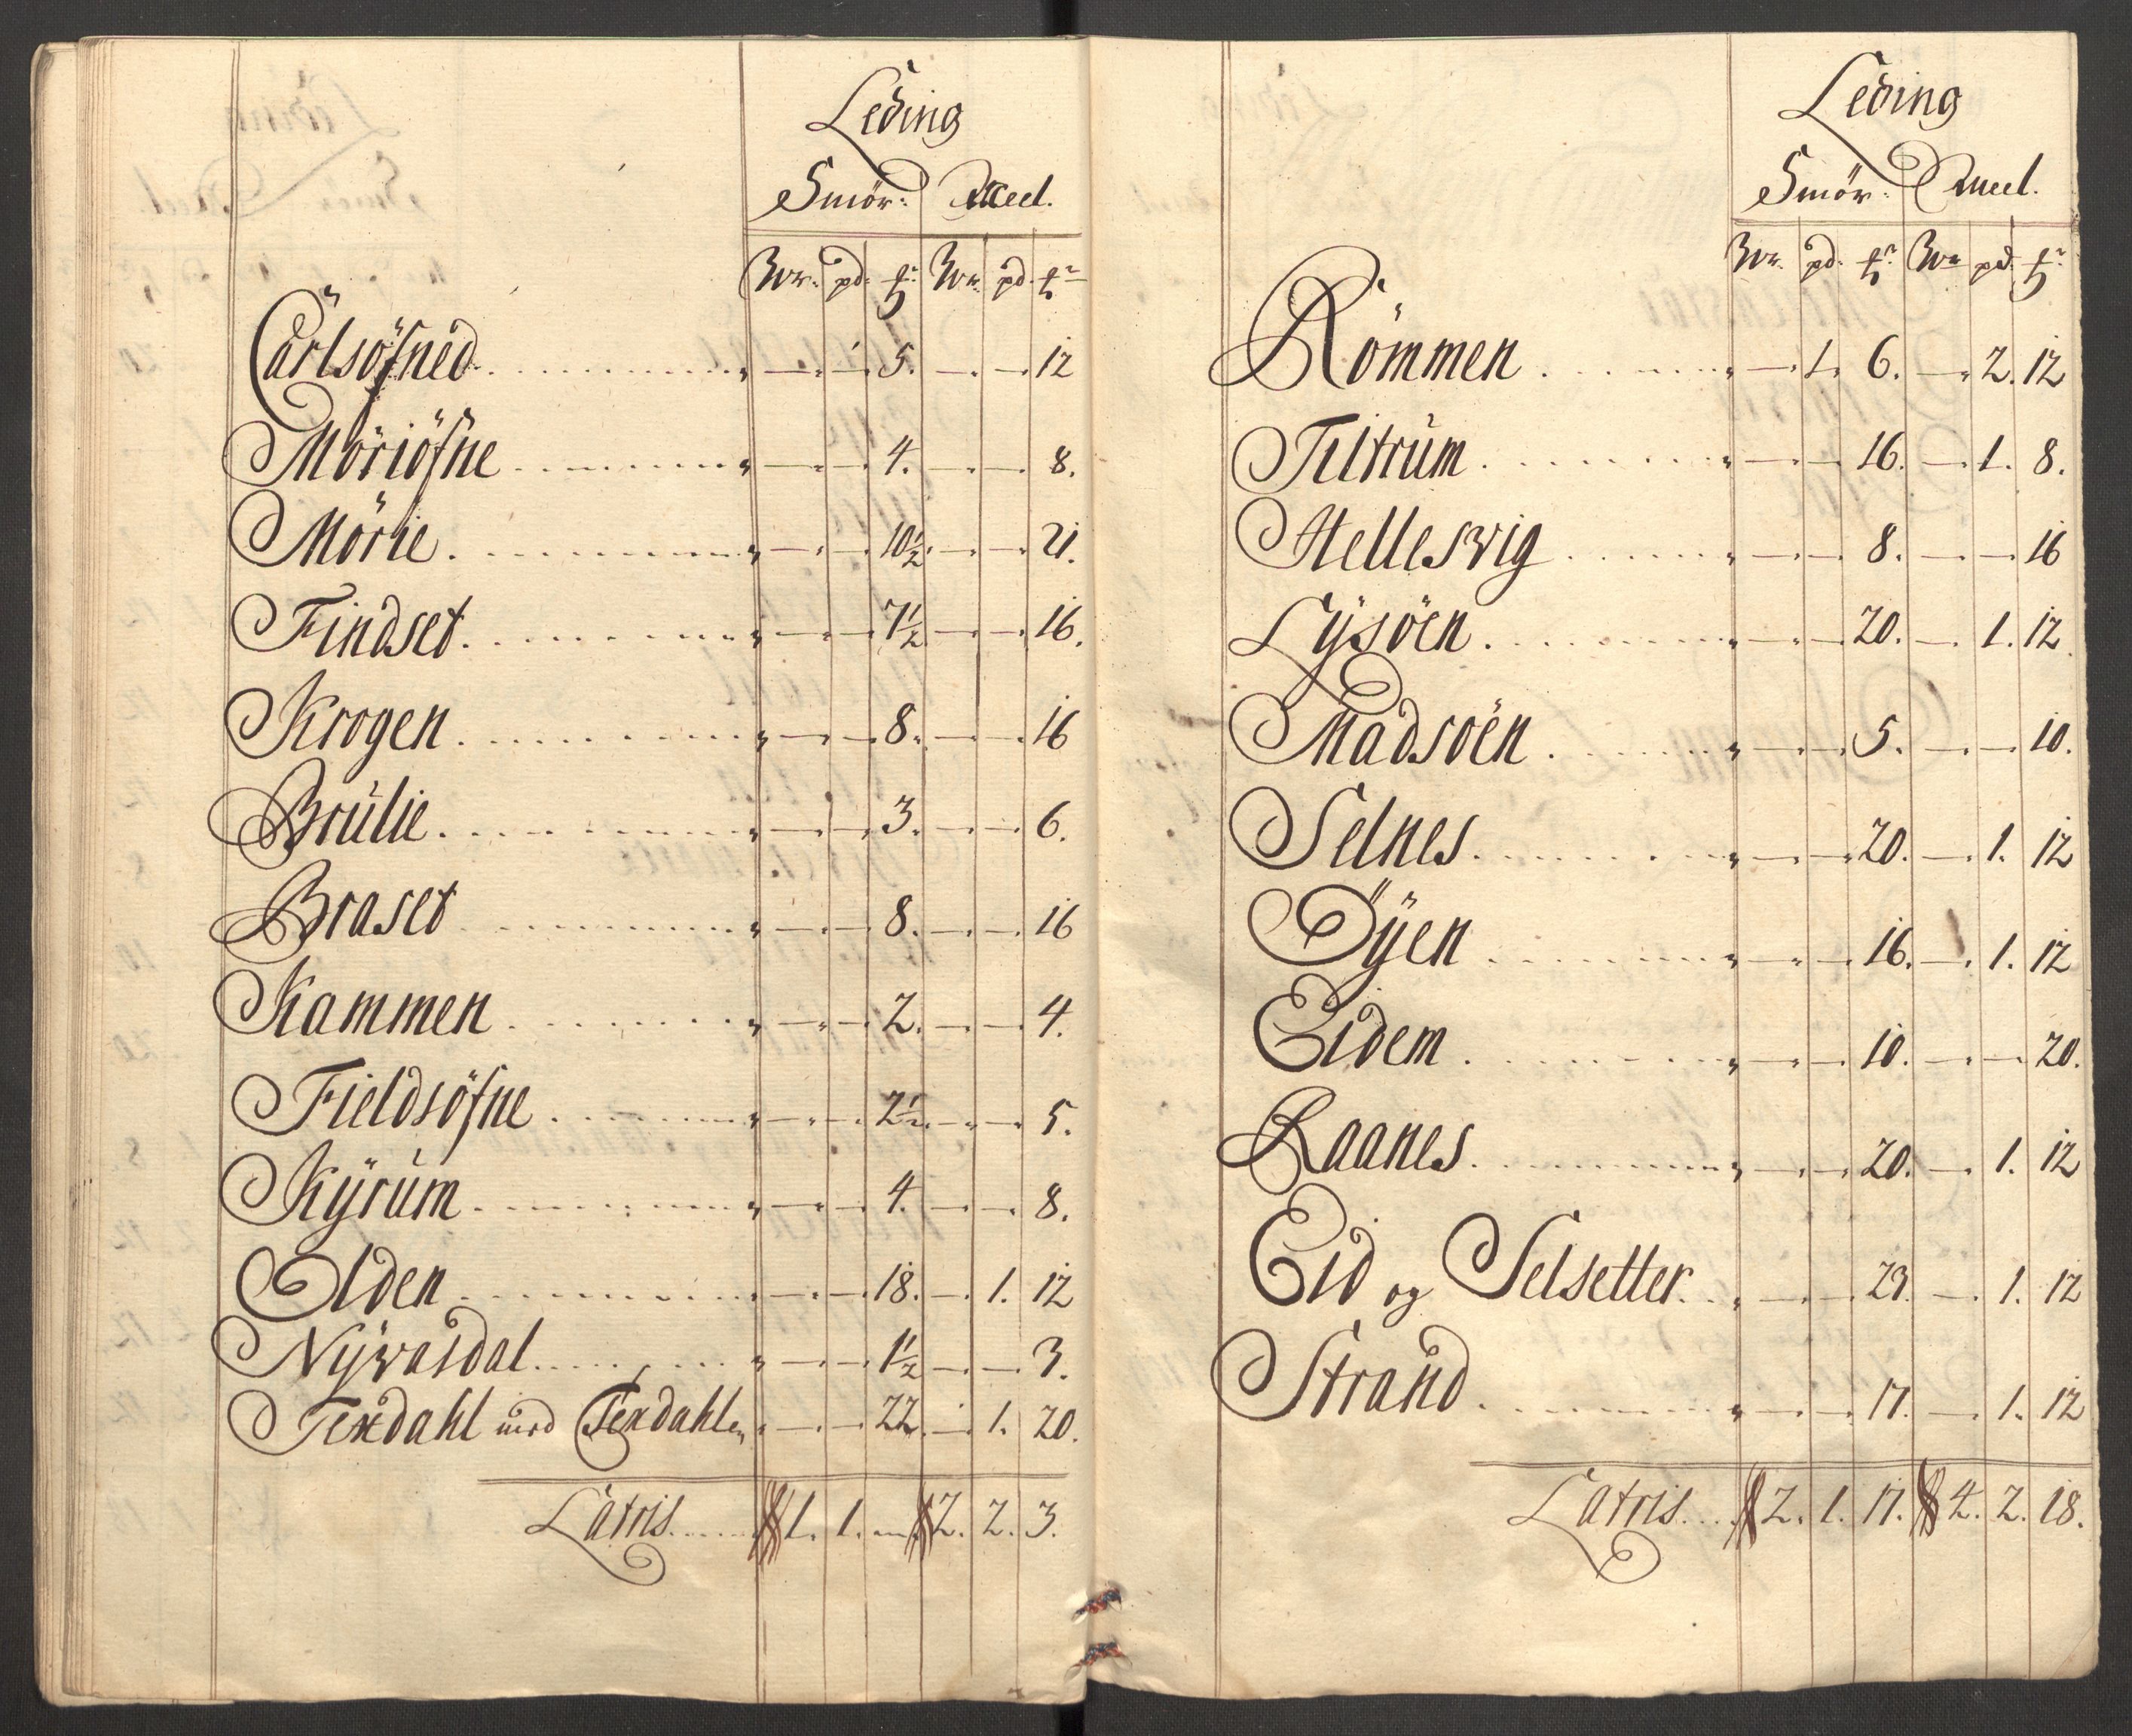 Leding
Smör: Meel.
Wr. pd. ℔r Wr. pd. ℔r
Carlsöfned . . . . — — 5. — — 12
Möriöfne . . . . — — 4. — — 8.
Mörie . . . . — — 10½. — — 21.
Findset . . . . — — 7½ — — 16.
Krogen . . . . — — 8. — — 16
Brülie . . . . — — 3. — — 6.
Braset . . . . — — 8. — — 16
Kammen . . . . — — 2. — — 4.
Fieldsöfne . . . . — — 2½. — — 5.
Kÿrüm . . . . — — 4. — — 8.
Olden . . . . — — 18. — 1. 12
Nÿwasdal . . . . — — 1½ — — 3.
Texdahl med Texdahlen — — 22. — 1. 20.
Latris . . . . 1. 1. — 2. 2. 3.
Leding
Smör: Meel.
Wr. pd. ℔r Wr pd. ℔r
Römmen . . . . — 1. 6. — 2. 12
Tiltrüm . . . . — — 16. — 1. 8.
Helleswig . . . . — — 8. — — 16
Lÿsöen . . . . — — 20. — 1. 12
Madsöen . . . . — — 5. — — 10.
Selnes . . . . — — 20. — 1. 12
Öÿen . . . . — — 16. — 1. 12
Eidem . . . . — — 10. — — 20.
Raanes . . . . — — 20. — 1. 12
Eid og Selsetter . . — — 23. — 1. 12
Strand . . . . — — 17. — 1. 12
Latris . . . 2. 1. 17. 4. 2. 18.